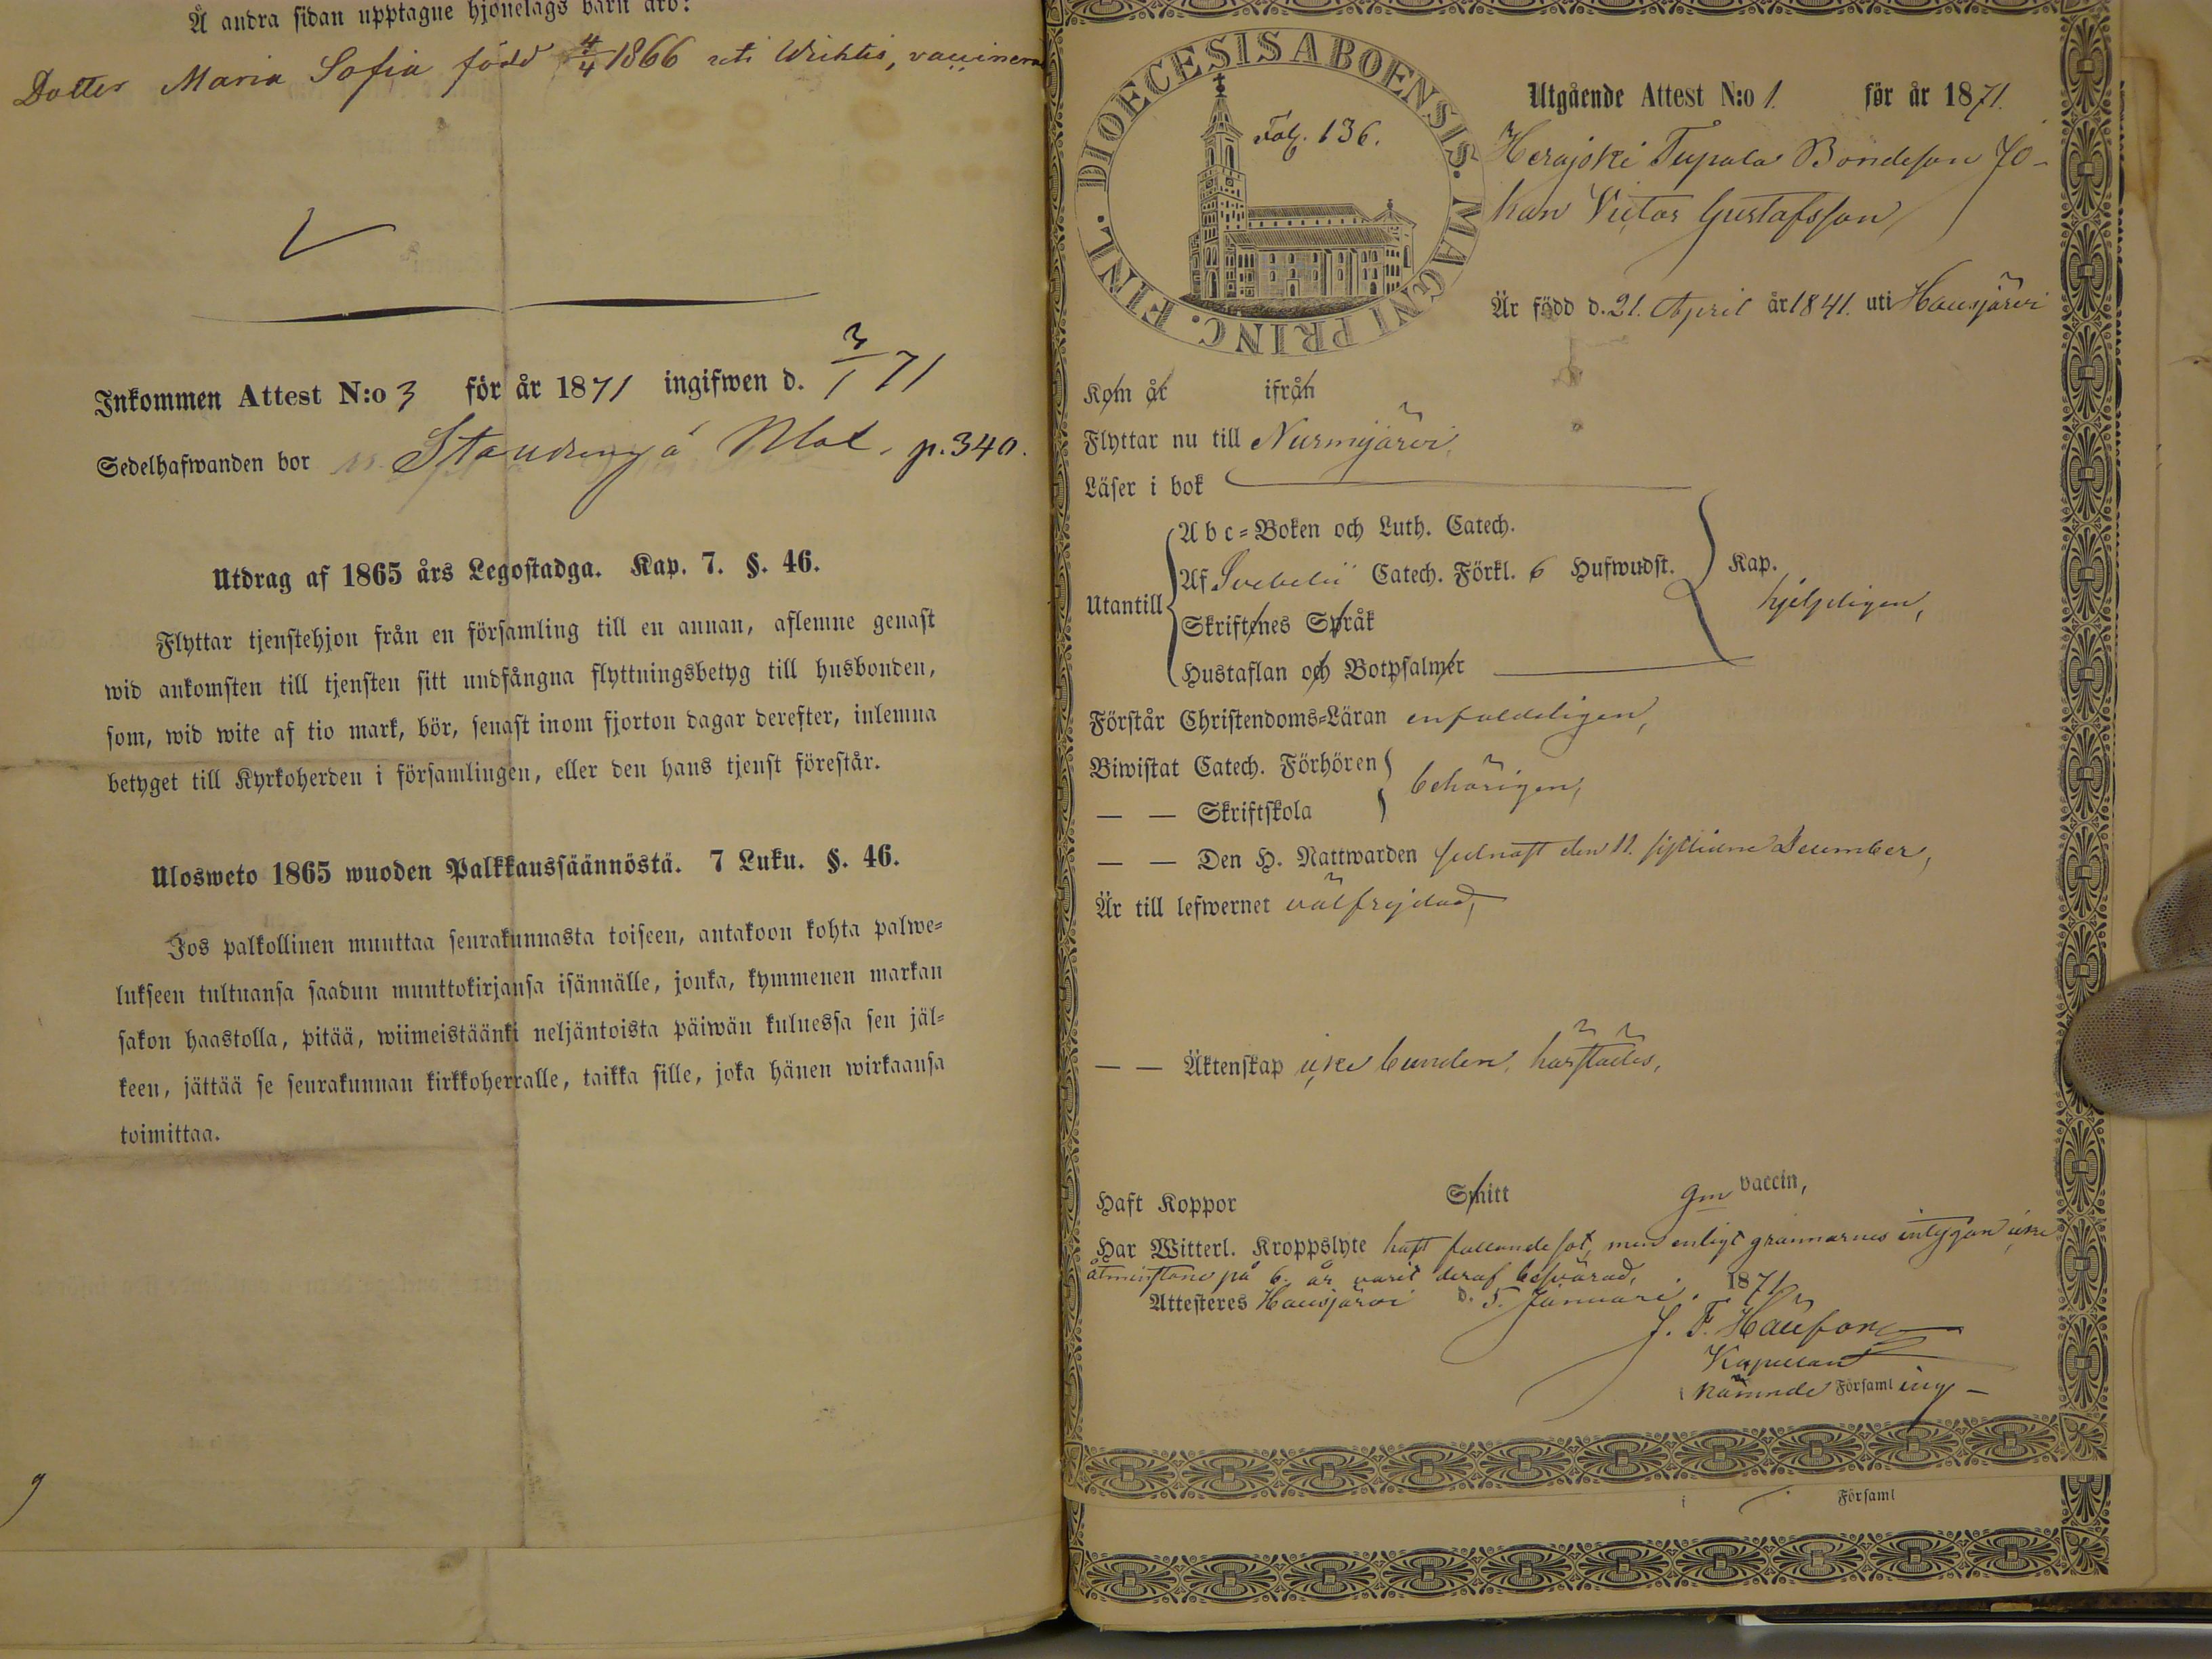 Å andra sidan upptagne hjonelags barn äro:
Dotter Maria Sofia född 4/4 1866 uti Wichtis, vaccinera
Inkommen Attest N:o 3 för år 1871 ingifwen d. 3/1 71
Sedelhafwanden bor p. 340.
Utdrag af 1865 års Legostadga. Kap. 7. §. 46.
Flyttar tjenstehjon från en församling till en annan, aflemne genast
wid ankomsten till tjensten sitt undfångna flyttningsbetyg till husbonden,
som, wid wite af tio mark, bör, senast inom fjorton dagar derefter, inlemna
betyget till Kyrkoherden i församlingen, eller den hans tjenst förestår.
Ulosweto 1865 wuoden Palkkaussäännöstä. 7 Luku. §. 46.
Jos palkollinen muuttaa seurakunnasta toiseen, antakoon kohta palwe=
lukseen tultuansa saadun muuttokirjansa isännälle, jonka, kymmenen markan
sakon haastolla, pitää, wiimeistäänki neljäntoista päiwän kuluessa sen jäl=
keen, jättää se seurakunnan kirkkoherralle, taikka sille, joka hänen wirkaansa
toimittaa.
DIOECESIS ABOENSIS. MAGNI PRINC. FINL.
Fol. 136.
Utgående Attest N:o 1. för år 1871.
Herajoki Tupala Bondeson Jo-
han Victor Gustafsson
Är född d. 21. April år 1841. uti Hausjärvi
Kom år ifrån
Flyttar nu till Nurmijärvi,
Läser i bok
Abc=Boken och Luth. Catech.
Af Svebelii Catech. Förkl. 6 Hufwudst. Kap.
Utantill hjelpligen,
Skriftenes Språk
Hustaflan och Botpsalmer
Förstår Christendoms=Läran enfaldeligen,
Biwistat Catech. Förhören behörigen,
— — Skriftskola
— — Den H. Nattwarden sednast den 11. sistlidne December,
Är till lefwernet välfrejdad,
— — Äktenskap icke bunden, härstädes,
Haft Koppor Smitt gm vaccin,
Har Witterl. Kroppslyte haft fallandesot, men enligt grannarnes intygan icke
åtminstone på 6. år varit deraf besvärad,
Attesteres Hausjärvi d. 5. Januari. 1871,
J. F.
Kapellan
i nämnde Församling -
i Församl